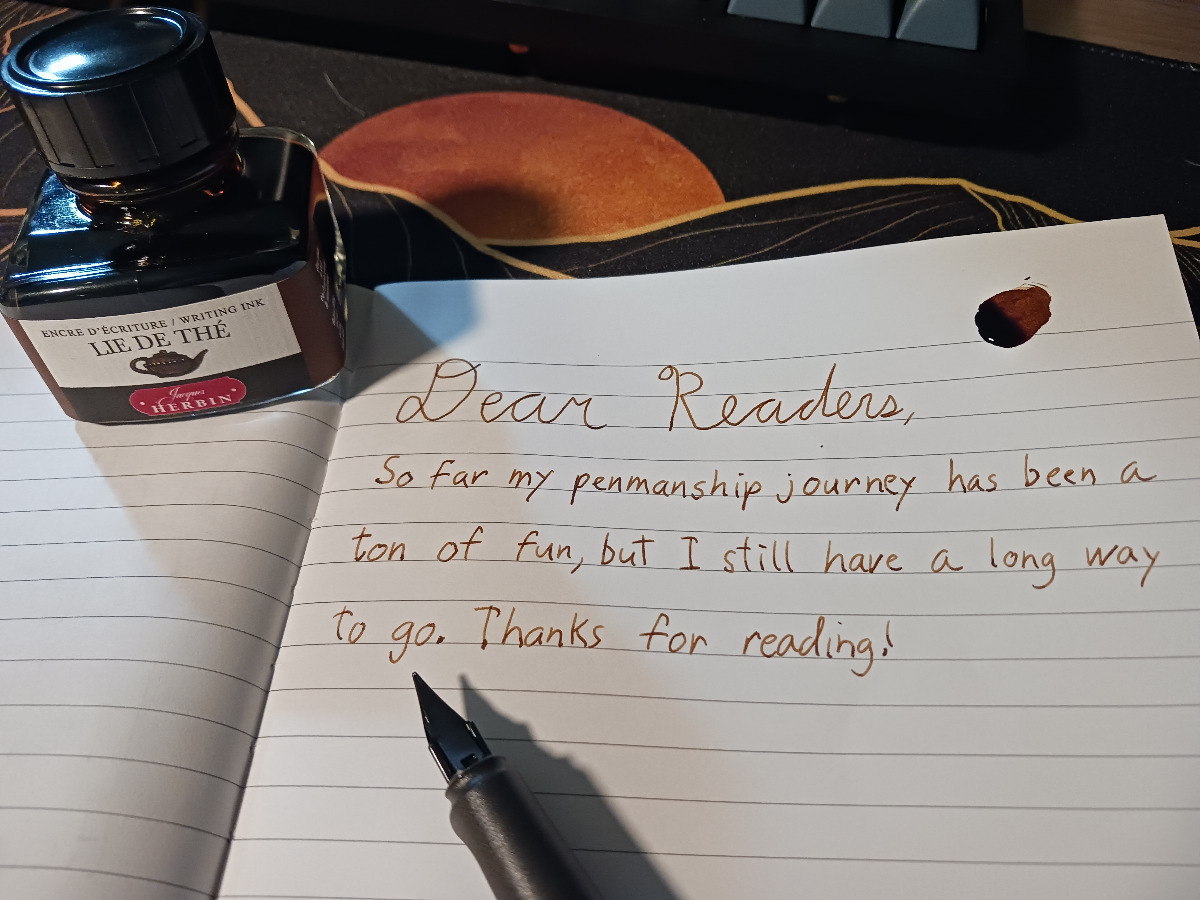 ENCRE D'ÉCRITURE / WRITING INK
LIE DE THÉ
Jacques
HERBIN
Dear Readers,
So far my penmanship journey has been a
ton of fun, but I still have a long way
to go. Thanks for reading!